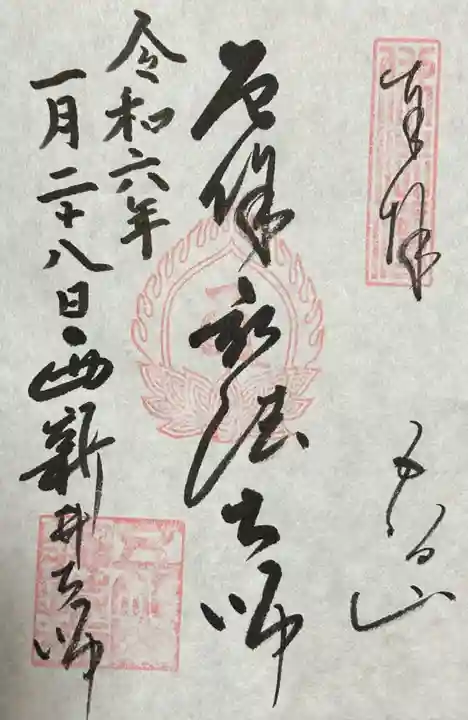 奉拝
五智山
厄除弘法大師
令和六年
一月二十八日西新井大師